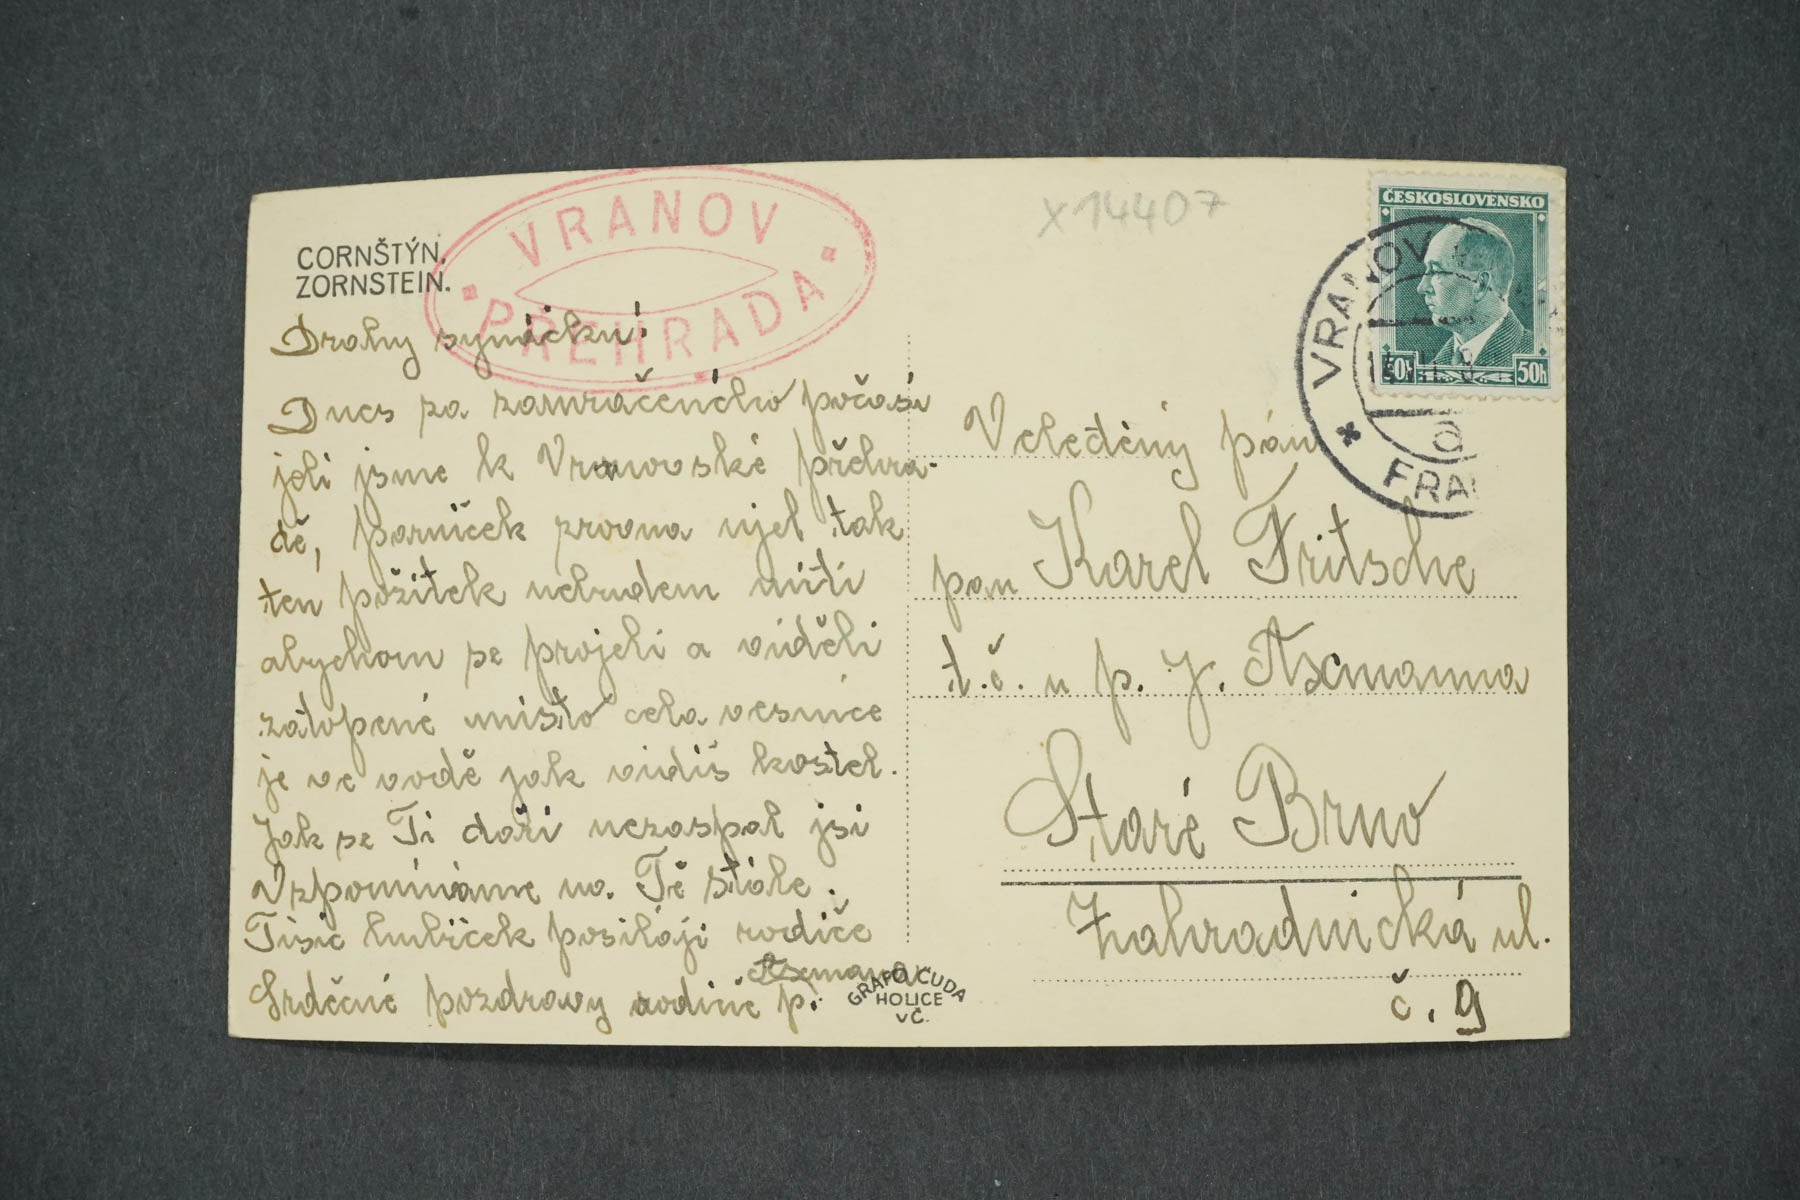 CORNŠTÝN.
ZORNSTEIN.
VRANOV
PŘEHRADA
x14407
ČESKOSLOVENSKO
50h 50h
VRANOV
FRA
Drahy synáčku!
Dnes za zamračeného počasí
jeli jsme k Vranovské přehra-
dě, parníček zrovna ujel tak
ten požitek nebudem míti
abychom se projeli a viděli
zatopené místo cela vesnice
je ve vodě jak vidiš kostel.
Jak se Ti daří nezaspal jsi
Vzpomínáme na Tě stále.
Tisic hubiček posilají rodiče
Srdečné pozdravy rodině p. Axmana
GRAFO ČUDA
HOLICE
VČ.
Veleděný pán
pan Karel Fritsche
t.č. u p. J. Axmanna
Staré Brno
Zahradnická ul.
č. 9